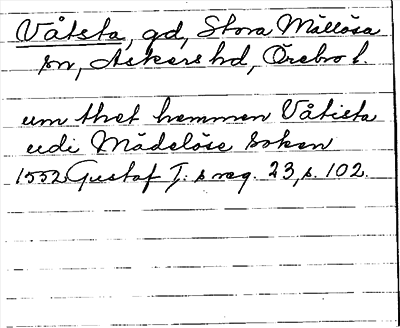 Våtsta, gd, Stora Mellösa
sn, Askers hd, Örebro l.
um thet hemmen Våtista
udi Mädelöse soken
1552 Gustaf I:s reg. 23, s. 102.